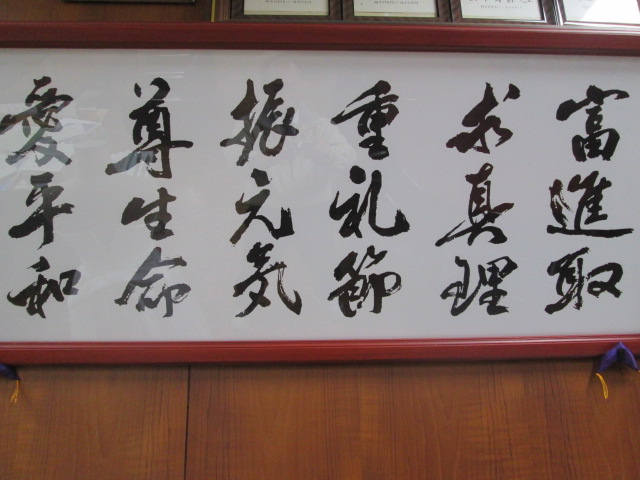 富進取
求真理
重礼節
振元気
尊生命
愛平和